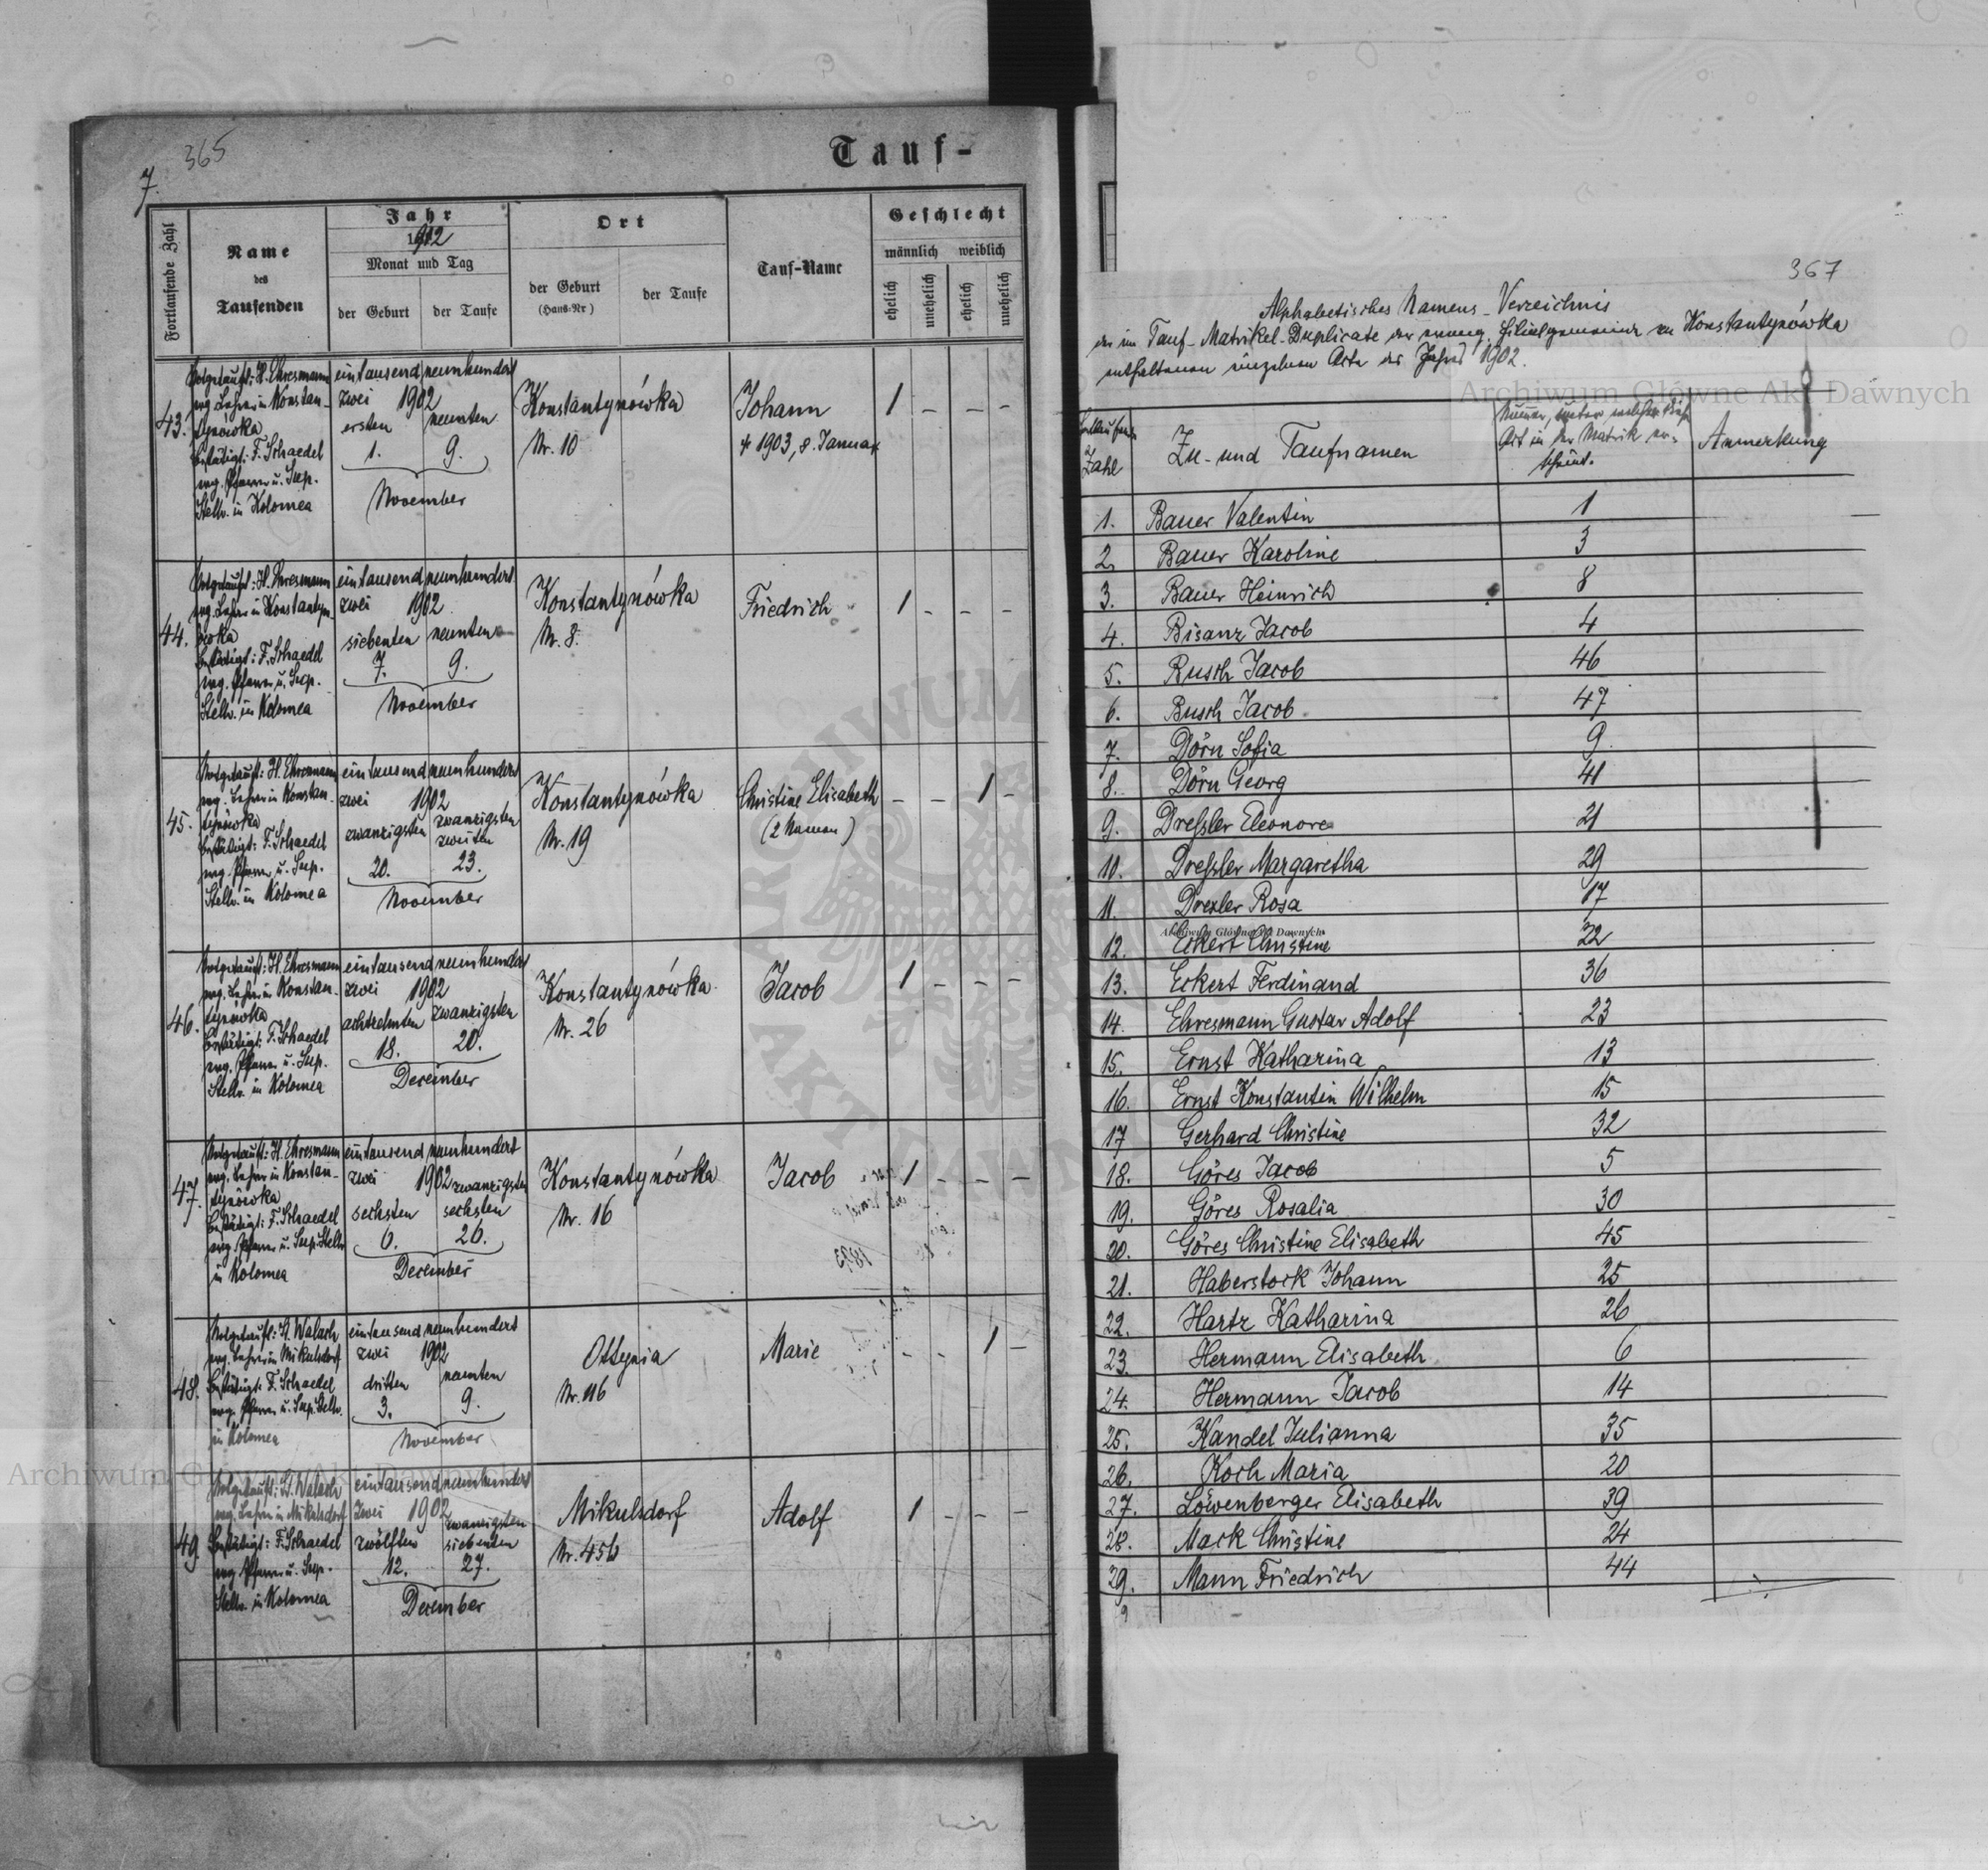 365
7.
Tauf-
Fortlaufende Zahl
Name
des
Taufenden
Jahr
1902
Monat und Tag
der Geburt
der Taufe
Ort
der Geburt
(Haus-Nr)
der Taufe
Tauf-Name
Geschlecht
männlich weiblich
ehelich
unehelich
ehelich
unehelich
43.
Notgetauft: H. Ehresmann
evg. Lehrer in Konstan-
tynówka
Bestätigt: F. Schaedel
evg. Pfarrer u. Sup.
Stellv. in Kolomea
eintausend neunhundert
zwei 1902
ersten neunten
1. 9.
November
Konstantynówka
Nr. 10
Johann
† 1903, 8. Januar
1 - - -
44.
Notgetauft: H. Ehresmann
evg. Lehrer in Konstantyn-
ówka
Bestätigt: F. Schaedel
evg. Pfarrer u. Sup.
Stellv. in Kolomea
eintausend neunhundert
zwei 1902
siebenten neunten
7. 9.
November
Konstantynówka
Nr. 8.
Friedrich
1 - - -
45.
Notgetauft: H. Ehresmann
evg. Lehrer in Konstan-
tynówka
Bestätigt: F. Schaedel
evg. Pfarrer u. Sup.
Stellv. in Kolomea
eintausend neunhundert
zwei 1902
zwanzigsten zwanzigsten
zweiten
20. 23.
November
Konstantynówka
Nr. 19
Christine Elisabeth
(2 Namen)
- - 1 -
46.
Notgetauft: H. Ehresmann
evg. Lehrer in Konstan-
tynówka
Bestätigt: F. Schaedel
evg. Pfarrer u. Sup.
Stellv. in Kolomea
eintausend neunhundert
zwei 1902
achtzehnten zwanzigsten
18. 20.
December
Konstantynówka
Nr. 26
Jacob
1 - - -
47.
Notgetauft: H. Ehresmann
evg. Lehrer in Konstan-
tynówka
Bestätigt: F. Schaedel
evg. Pfarrer u. Sup. Stellv.
in Kolomea
eintausend neunhundert
zwei 1902 zwanzigsten
sechsten sechsten
6. 26.
December
Konstantynówka
Nr. 16
Jacob
1 - - -
48.
Notgetauft: A. Walach
evg. Lehrer in Mikulsdorf
Bestätigt: F. Schaedel
evg. Pfarrer u. Sup. Stellv.
in Kolomea
eintausend neunhundert
zwei 1902
dritten neunten
3. 9.
November
Ottynia
Nr. 116
Marie
- - 1 -
49
Notgetauft: A. Walach
evg. Lehrer in Mikulsdorf
Bestätigt: F. Schaedel
evg. Pfarrer u. Sup.
Stellv. in Kolomea
eintausend neunhundert
zwei 1902
zwanzigsten
zwölften siebenten
12. 27.
December
Mikulsdorf
Nr. 456
Adolf
1 - - -
367
Alphabetisches Namens-Verzeichnis
der im Tauf-Matrikel-Duplicate der evang. Filialgemeinde zu Konstantynówka
enthaltenen einzelnen Acte des Jahres 1902.
Fortlaufende
Zahl
Zu- und Taufnamen
Nummer, unter welcher dieser
Act in der Matrik er-
scheint.
Anmerkung
1. Bauer Valentin 1
2. Bauer Karoline 3
3. Bauer Heinrich 8
4. Bisanz Jacob 4
5. Busch Jacob 46
6. Busch Jacob 47
7. Dörn Sofia 9
8. Dörn Georg 41
9. Dreßler Eleonore 21
10. Dreßler Margaretha 29
11. Drexler Rosa 17
12. Eckert Christine 22
13. Eckert Ferdinand 36
14. Ehresmann Gustav Adolf 23
15. Ernst Katharina 13
16. Ernst Konstantin Wilhelm 15
17 Gerhard Christine 32
18. Göres Jacob 5
19. Göres Rosalia 30
20. Göres Christine Elisabeth 45
21. Haberstock Johann 25
22. Hartz Katharina 26
23. Hermann Elisabeth 6
24. Hermann Jacob 14
25. Kandel Julianna 35
26. Koch Maria 20
27. Löwenberger Elisabeth 39
28. Mack Christine 24
29. Mann Friedrich 44
Archiwum Główne Akt Dawnych
Archiwum Główne Akt Dawnych
Archiwum Główne Akt Dawnych